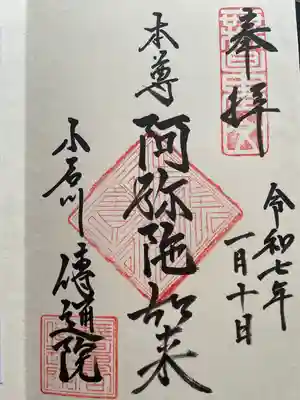 奉拝
令和七年
一月十日
本尊
阿弥陀如来
小石川
傳通院